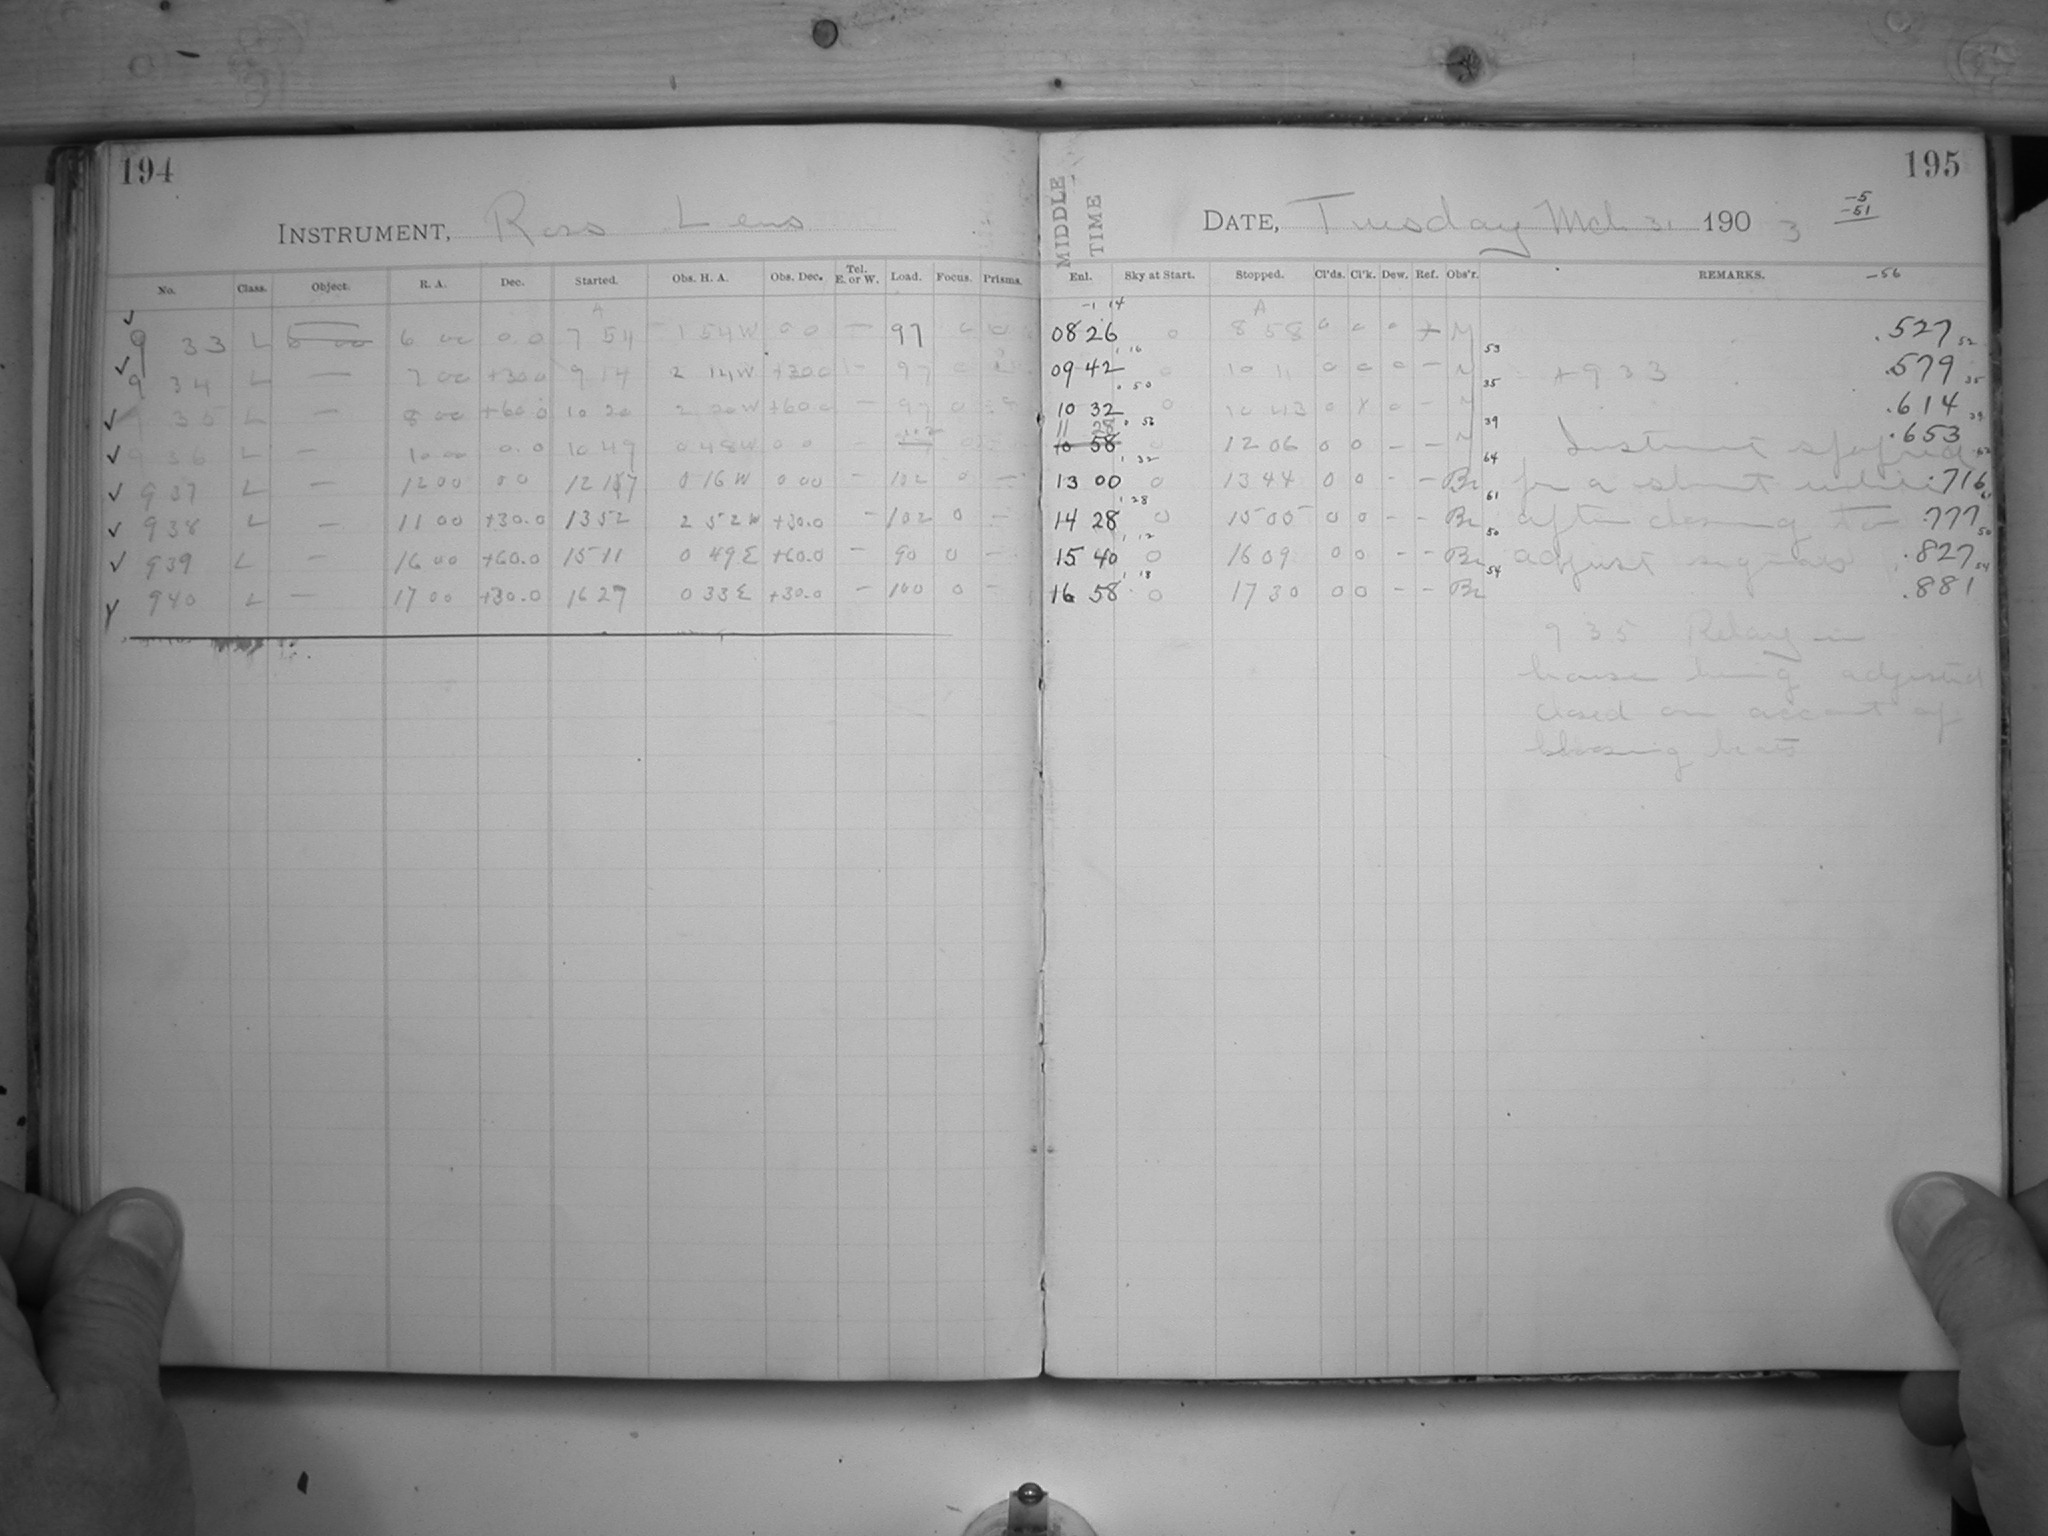 194
INSTRUMENT, Ross Lens
No. Class. Object. R. A. Dec. Started. Obs. H. A. Obs. Dec. Tel. E. or W. Load. Focus. Prisms.
A
9 33 L 6 00 0 0 7 54 1 54 W 0 0 — 97 0
9 34 L — 7 00 +30 0 9 14 2 14 W +30 0 — 97 0
35 L — 8 00 +60 0 10 20 2 20 W +60.0 — 97 0
936 L — 10 00 0.0 10 49 0 48 W 0 0 — 102
937 L — 12 00 0 0 12 17 0 16 W 0 00 — 102 0 —
938 L — 11 00 +30.0 13 52 2 52 W +30.0 — 102 0 —
939 L — 16 00 +60.0 15 11 0 49 E +60.0 — 90 0 —
940 L — 17 00 +30.0 16 27 0 33 E +30.0 — 100 0 —
195
MIDDLE TIME
DATE, Tuesday Mch 31 1903
-5
-51
-56
Enl. Sky at Start. Stopped. Cl'ds. Cl'k. Dew. Ref. Obs'r. REMARKS.
-1 14
A
08 26 0 8 58 0 0 0 + M .527 52
1 16 53
09 42 0 10 11 0 0 0 — M +933 .579 35
0 50 35
10 32 0 10 43 0 x 0 — M .614 39
11 28 0 56 39
10 58 0 12 06 0 0 — — M Instrument stopped .653
1 32 64
13 00 0 13 44 0 0 - - Br for a short while .716 61
1 28 61
14 28 0 15 05 0 0 - - Br after closing to .777 50
1 12 50
15 40 0 16 09 0 0 - - Br adjust signals .827 54
1 18 54
16 58 0 17 30 0 0 - - Br .881
935 Relay in
house being adjusted
closed on account of
loosing beats